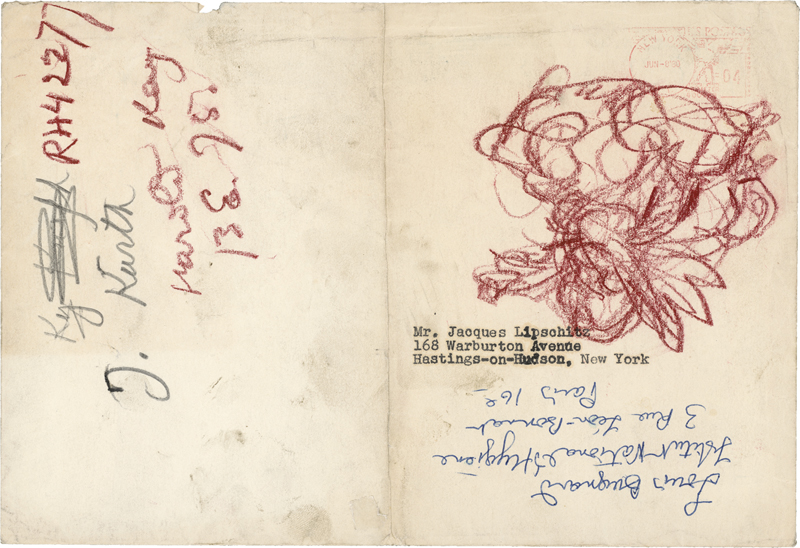 RH42277
J. Kurth
Kay
13 E 95.
Mr. Jacques Lipschitz
168 Warburton Avenue
Hastings-on-Hudson, New York
Louis Bugnard
Istitut National d'Hygiène
3 Rue Léon-Bonnat
Paris 16e